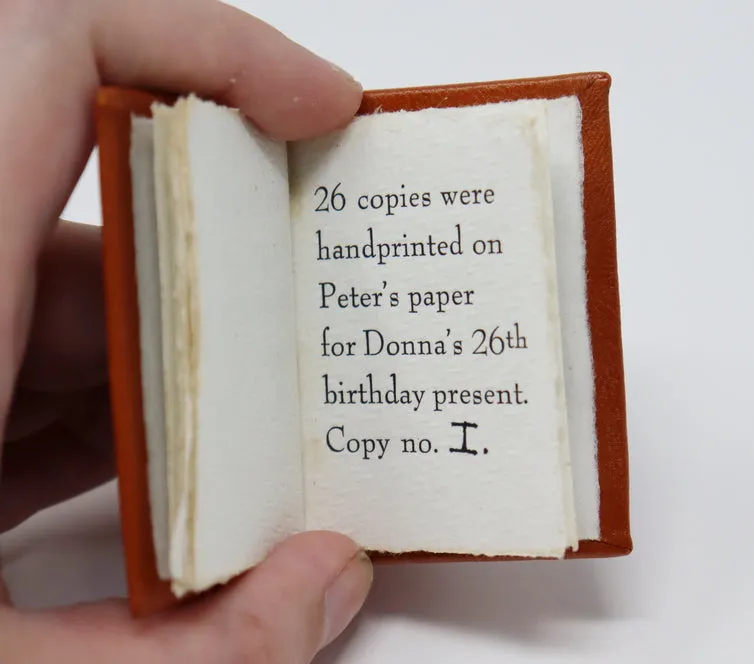 26 copies were
handprinted on
Peter's paper
for Donna's 26th
birthday present.
Copy no. I.